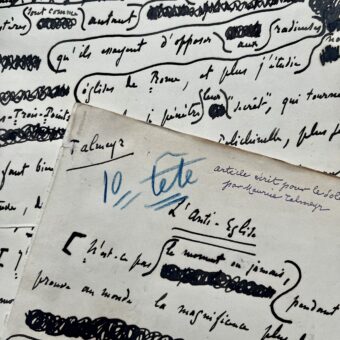 sont comme
autant
radieuses
qu'ils essayent d'opposer aux
églises de Rome, et plus j'étudie
pénètre leur "secret", qui tourne
-Trois-Points
Polichinelle, plus
faut bien
Talmeyr
10 tête
article écrit pour le
par Maurice Talmeyr
L'Anti-Église
[N'est-ce pas le moment ou jamais,
pendant
prouve au monde la magnificence plus